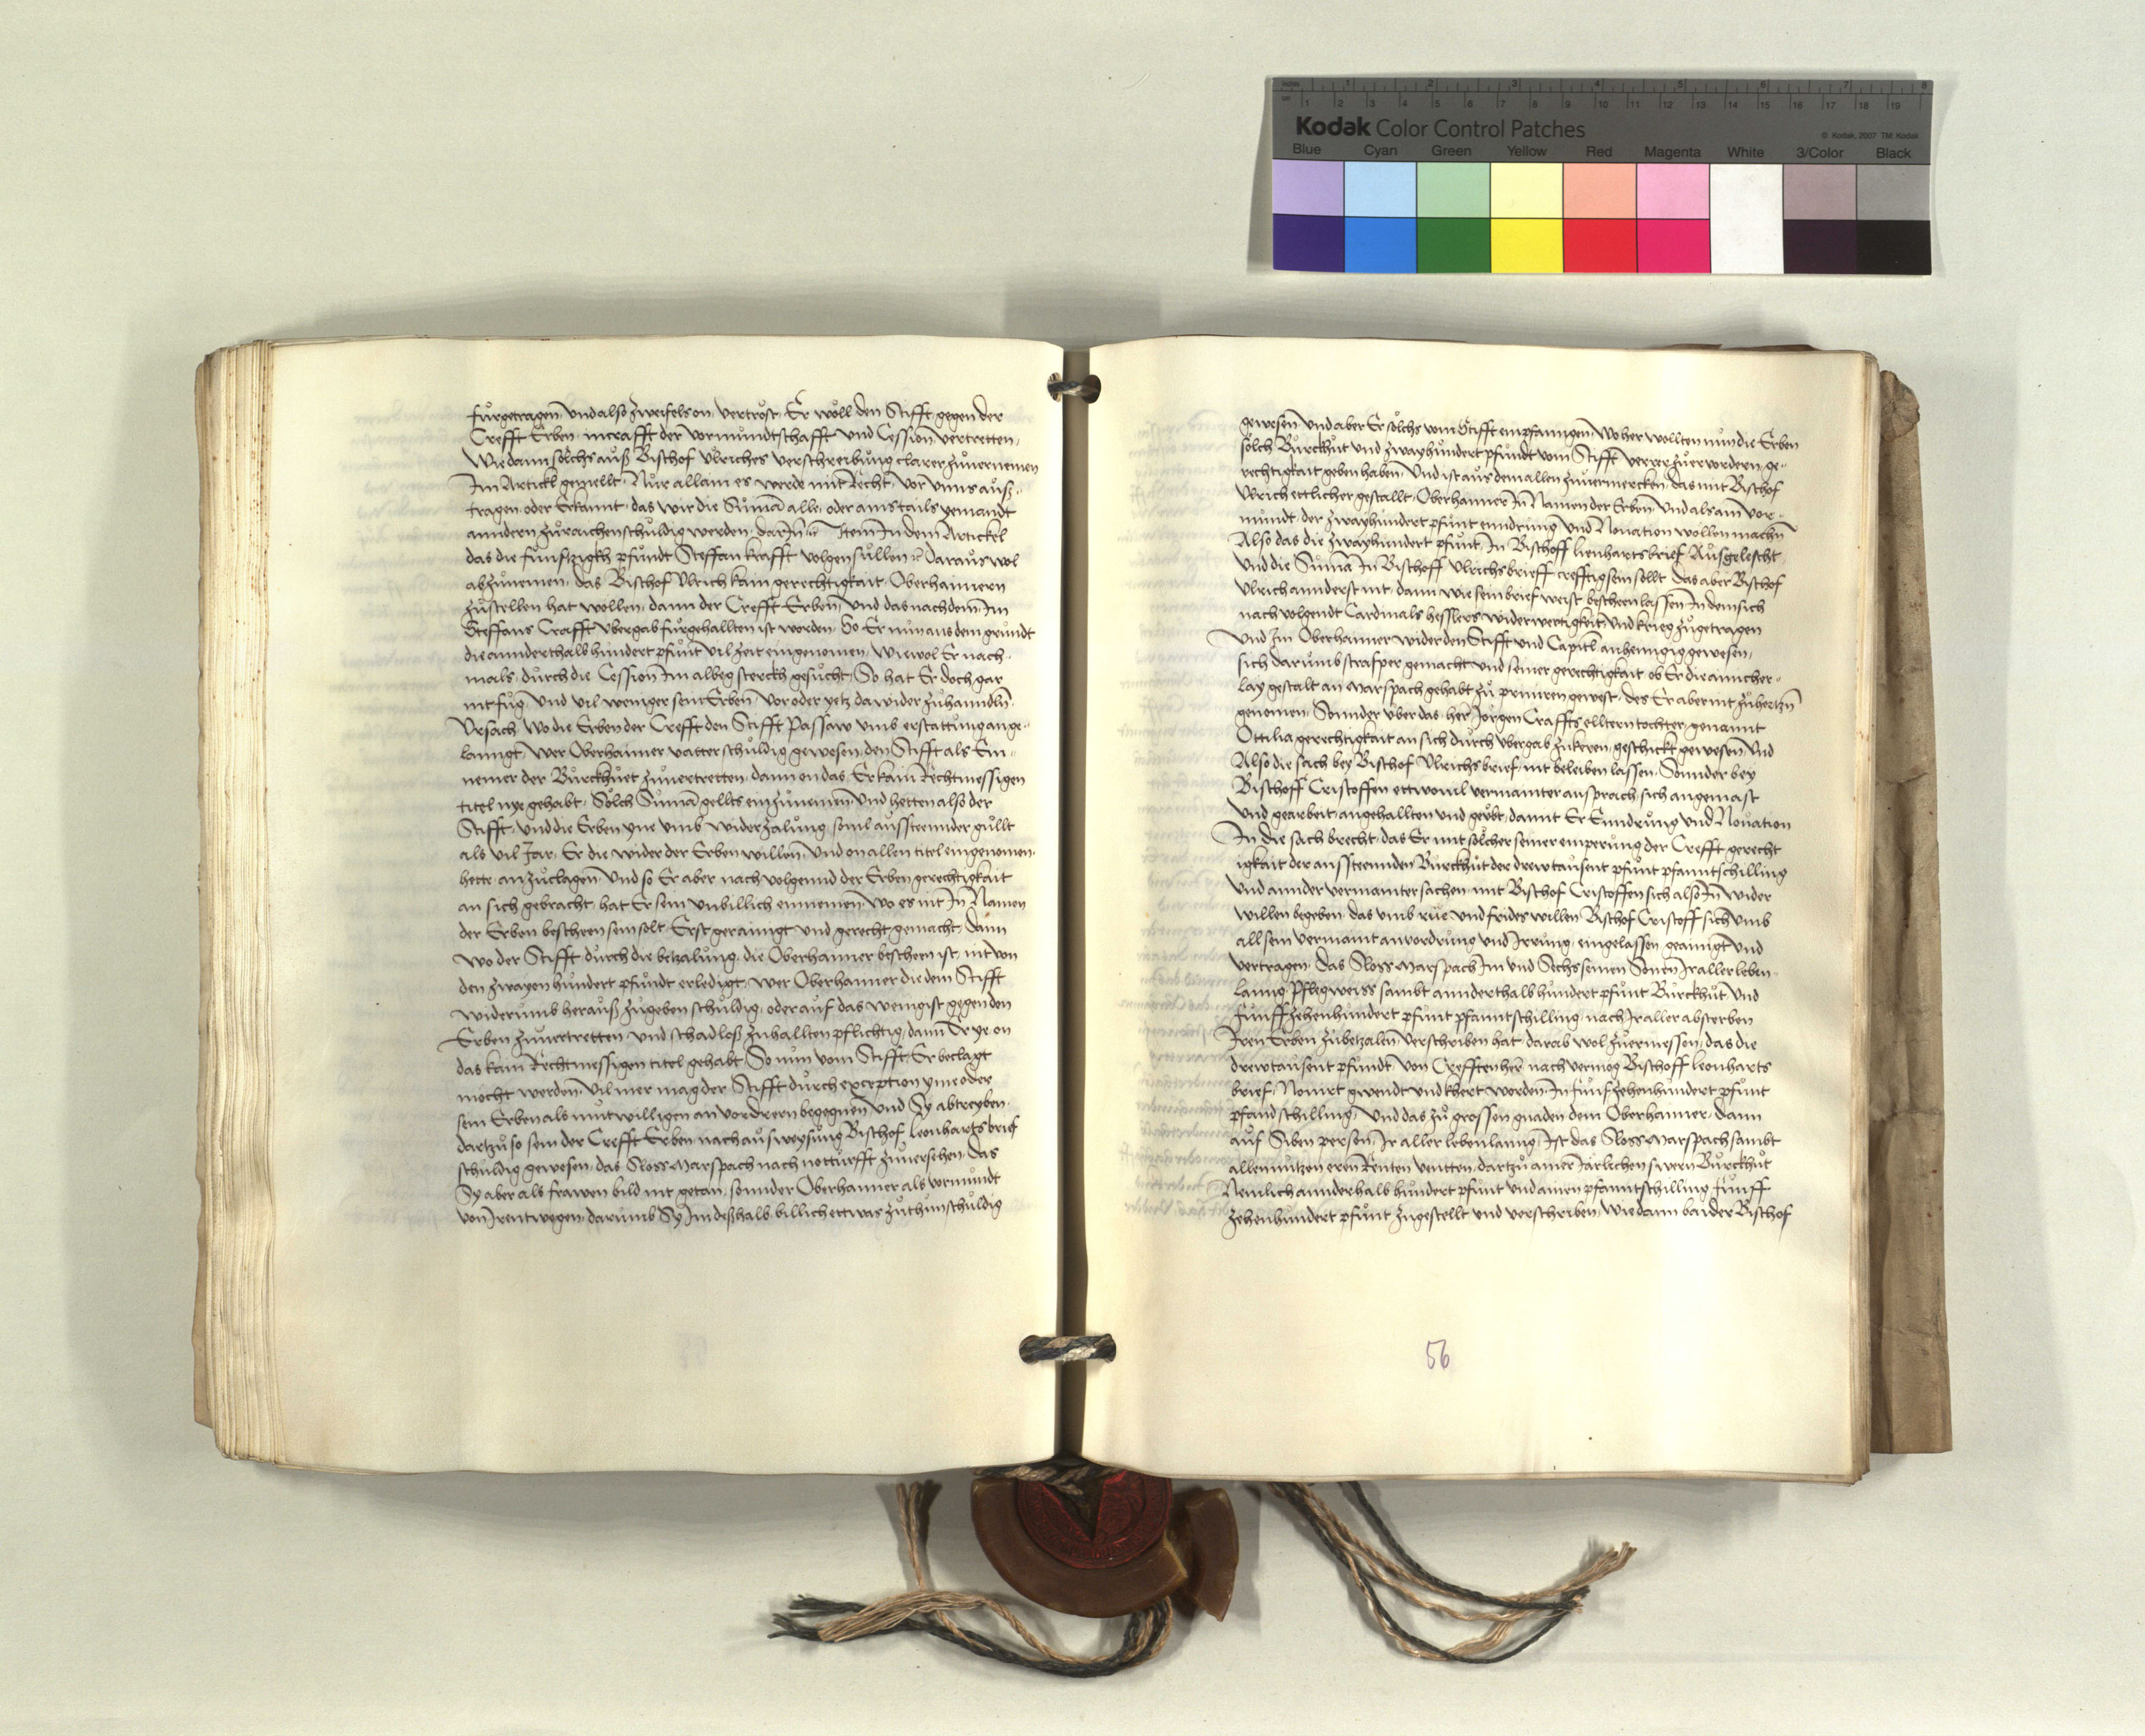 fůrgetragen̄ vnd also zweifels on vertrőst Er wőll den Stifft gegen der
Crefft Erben in crafft der vormůndtschafft vnd Cession vertretten
Wie dann sőlchs auß Bischof Ulriches verschreibung clarer zůuernemen
Im Artickl gemellt Nur allain es werde mit Recht vor vnns auß
tragen oder Erkannt das wir die Sům̄a alle oder ains tails yemandt
anndern zůraichen schuldig werden darInn̄ Item In dem Artickel
das die fůnftzigkh pfůndt Steffan krafft volgen sůllen Daraus wol
abzůnemen das Bischof Ulrich kain gerechtigkait Oberhaimern
zůstellen hat wollen dann der Crefft Erben̄ vnd das nach dem Im
Steffans Crafft vbergab fůrgehallten ist worden So Er nun aus dem grůndt
die annderthalbhundert pfůnt vil zeit eingenomen wiewol Er nach
mals durch die Cession Im albeg sterckh gesůcht So hat Er doch gar
nit fůg vnd vil weniger sein Erben̄ vor oder yetz dawider zůhanndln̄
Ursach Wo die Erben der Crefft den Stifft Passaw vmb erstattung ange
lanngt wer Oberhaimer vatter schuldig gewesen den Stifft als Ein
nemer der Bůrckhůet zůuertretten dann on das Er kain Rechtmessigen
titel nye gehabt Sőlch Sům̄a gellts einzůnemen vnd hetten also der
Stifft vnd die Erben yne vmb widerzalůng souil aussteennder gůllt
als vil Jar Er die wider der Erben willen̄ vnd on allen titel eingenomen
hette anzůclagen̄ Vnd so Er aber nachvolgennd der Erben gerechtigkait
an sich gebracht hat Er sein vnbillich einnemen wo es nit In Namen
der Erben bescheen sein solt Erst gerainigt vnd gerecht gemacht dann
wo der Stifft durch die betzalůng die Oberhaimer bescheen ist nit von
den zwayen hůndert pfůndt erledigt wer Oberhaimer die dem Stifft
widerumb herauß zůgeben schůldig oder auf das wenigist gegen den
Erben zůuertretten vnd schadloß zůhallten pflichtig dann Er ye on
das kain Rechtmessigen titel gehabt So nun vom Stifft Er beclagt
mőcht werden Vil mer mag der Stifft durch exception yme oder
sein Erben als mutwilligen anvordrern begegnen vnd Sy abtreyben
dartzů so sein der Crefft Erben nach außweysůng Bischof Leonharts brief
schůldig gewesen das Sloss Marspach nach notturfft zůuersehen das
Sy aber als frawen bild nit getan sonnder Oberhaimer als vormůndt
von Irentwegen darůmb Sy Im deßhalb billich ettwas zůthun schůldig
gewesen̄ vnd aber Er sőlchs vom Stifft empfanngen Woher wollten nun die Erben
sőlch Bůrckhůt vnd zwayhůndert pfůndt vom Stifft verrer zůervordern ge
rechtigkait geben haben Vnd ist aus dem allen zůuermercken das mit Bischof
Ulrich ettlicher gestallt Oberhaimer In Namen der Erben vnd als ain vor
můndt der zwayhůndert pfůnt enndrung vnd Nouation wollen machn̄
Also das die zwayhůndert pfůnt In Bischoff lienharts brief Ausgelescht
vnd die Sům̄a In Bischoff Ulrichs brieff crefftig sein sollt das aber Bischof
Ulrich annderst nit dann wie sein brief weist bescheen lassen In dem sich
nachvolgendt Cardinals hesslers widerwertigkeit vnd krieg zůgetragen
Vnd Im Oberhaimer wider den Stifft vnd Capitl anhenngig gewesen
sich darůmb strafper gemacht vnd seiner gerechtigkait ob Er die ainicher
lay gestalt an Marspach gehabt zů priuiren gewest des Er aber nit zůhertzn̄
genomen Sonnder vber das her Jőrgen Craffts elltern tochter genannt
Ottilia gerechtigkait an sich durch vbergab zůkeren geschickt gewesen vnd
Also die sach bey Bischof Ulrichs brief nit beleiben lassen Sonnder bey
Bischoff Cristoffen ettwouil vermainter ansprach sich angemast
vnd gearbeit angehallten vnd geůbt damit Er Enndrung vnd Nouation
In die sach brecht das Er mit sőlcher seiner emperůng der Crefft gerecht
igkait der aussteennden Bůrckhůt der drewtausent pfůnt pfanntschilling
vnd annder vermainter sachen mit Bischof Cristoffen sich also In wider
willen begeben das vmb růe vnd frides willen Bischof Cristoff sich vmb
all sein vermaint anvordrung vnd Irrung eingelassen geainigt vnd
vertragen das Sloss Marspach Im vnd Sechs seinen Sőnen Ir aller leben
lanng Pflegweiss sambt annderthalb hůndert pfůnt Bůrckhůt vnd
fůnffzehenhůndert pfůnt pfanntschilling nach Ir aller absterben
Iren Erben zůbetzalen verschriben hat darab wol zůermessen das die
drewtausent pfůndt von Crefften herr nach vermőg Bischoff Leonharts
brief Nouirt gwendt vnd khert worden In fůnfzehenhůndert pfůnt
pfandschilling Vnd das zů grossen gnaden dem Oberhaimer dann
auf Siben person Ir aller lebenlanng Ist das Sloss Marspach sambt
allen nutzen eren̄ Renten vnntten dartzů ainer Jarlichen swern Bůrckhůt
Nemlich annderhalb hůndert pfůnt vnd ainen pfanntschilling fůnff
zehenhůndert pfůnt zůgestellt vnd verschriben wie dann baider Bischof
56
Kodak Color Control Patches
© Kodak, 2007 TM: Kodak
Blue Cyan Green Yellow Red Magenta White 3/Color Black